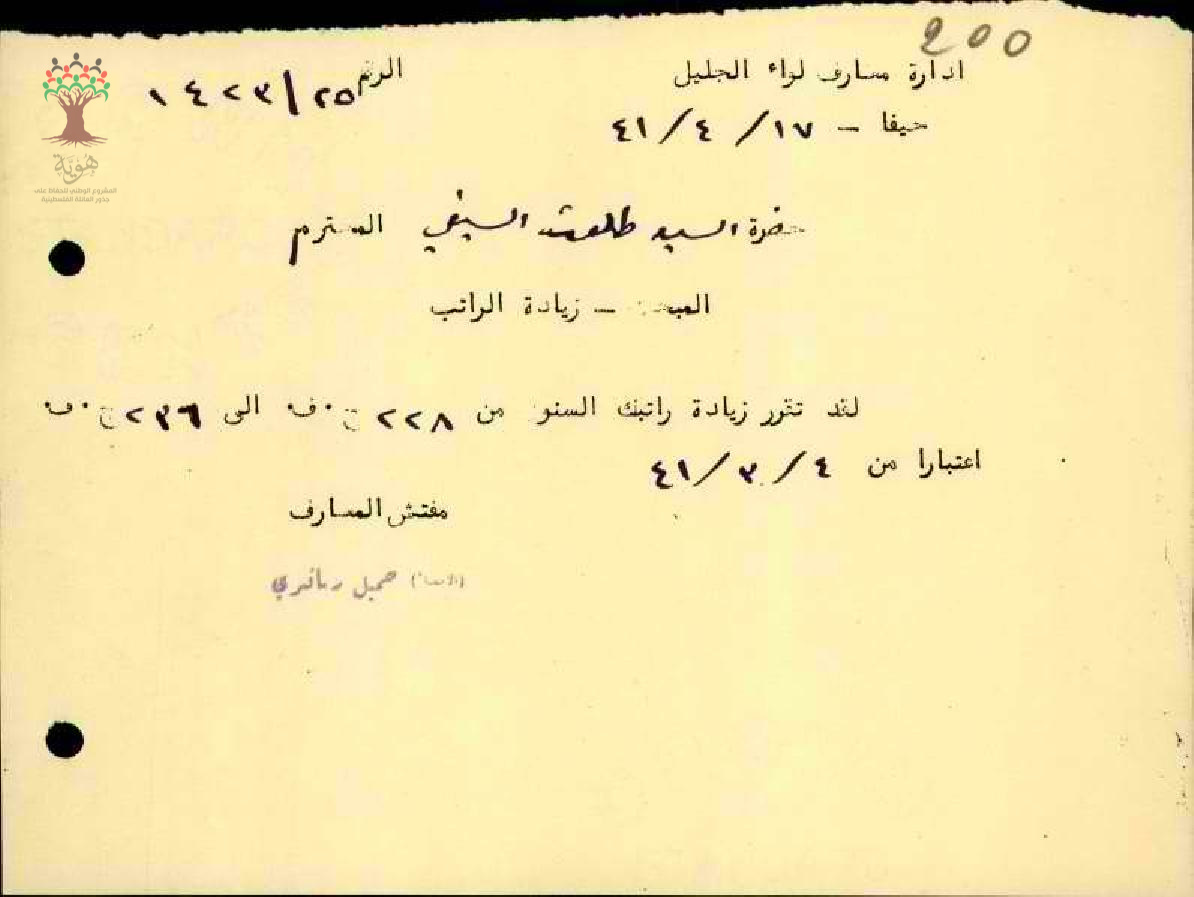 200
ادارة معارف لواء الجليل
الرقم ١٤٢٣/٢٥
حيفا - ١٧/ ٤ / ٤١
هُويَّة
المشروع الوطني للحفاظ على
جذور العائلة الفلسطينية
حضرة السيد طلعت السيفي المحترم
المبحث - زيادة الراتب
لقد تقرر زيادة راتبك السنوي من ٢٢٨ ج.ف. الى ٢٣٦ ج.ف.
اعتبارا من ٤ / ٣ / ٤١
مفتش المعارف
(الامضاء) جميل